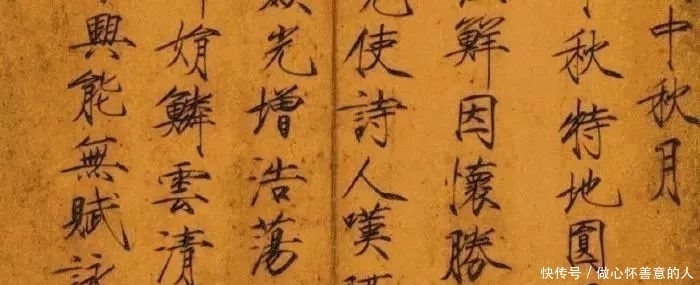 中秋月
秋特地圓
鮮因懷勝
免使詩人嘆
斂光增浩蕩
娟鱗雲清
興能無賦詠
快传号 / 做心怀善意的人